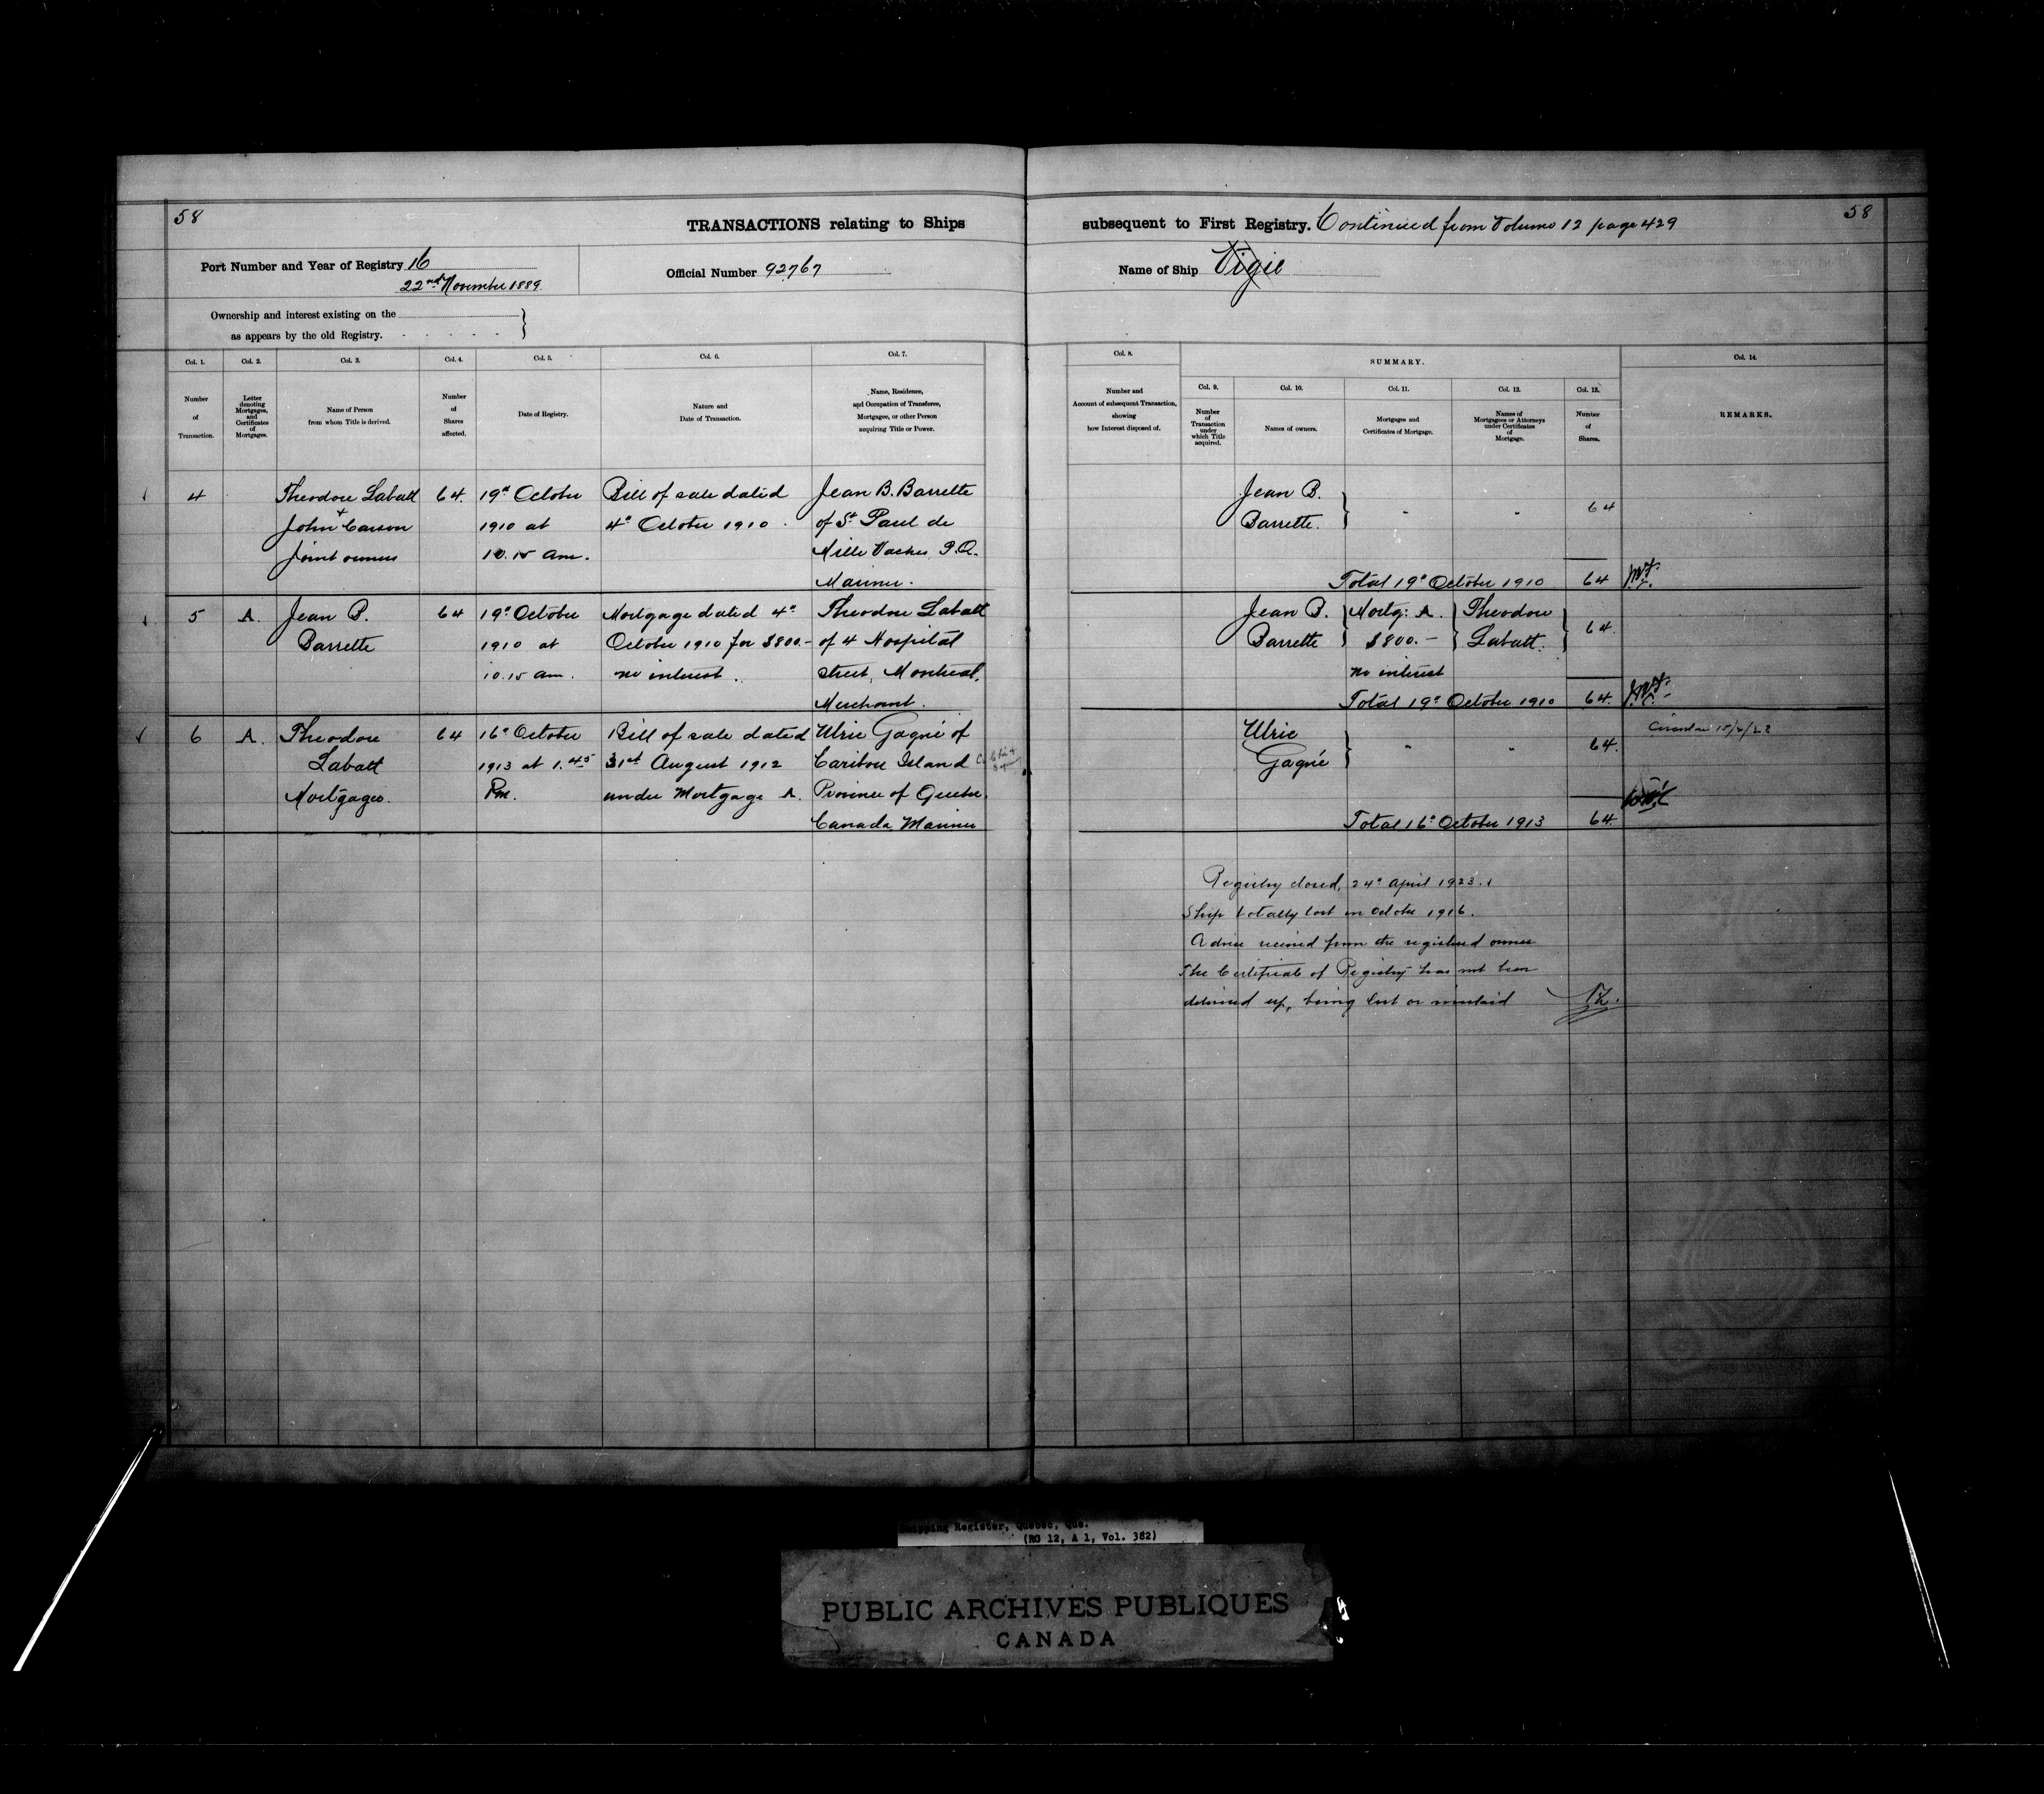 58
TRANSACTIONS relating to Ships
subsequent to First Registry. Continued from Volume 12 page 429
58
Port Number and Year of Registry 16
22nd November 1889.
Official Number 92767
Name of Ship Vigie
Ownership and interest existing on the
as appears by the old Registry. - - - - - }
Col. 1.
Number
of
Transaction.
Col. 2.
Letter
denoting
Mortgages,
and
Certificates
of
Mortgages.
Col. 3.
Name of Person
from whom Title is derived.
Col. 4.
Number
of
Shares
affected.
Col. 5.
Date of Registry.
Col. 6.
Nature and
Date of Transaction.
Col. 7.
Name, Residence,
and Occupation of Transferee,
Mortgagee, or other Person
acquiring Title or Power.
Col. 8.
Number and
Account of subsequent Transaction,
showing
how Interest disposed of.
SUMMARY.
Col. 9.
Number
of
Transaction
under
which Title
acquired.
Col. 10.
Names of owners.
Col. 11.
Mortgages and
Certificates of Mortgage.
Col. 12.
Names of
Mortgagees or Attorneys
under Certificates
of
Mortgage.
Col. 13.
Number
of
Shares.
Col. 14.
REMARKS.
4
Theodore Labatt
+
John Carson
Joint owners
64.
19th October
1910 at
10.15 am.
Bill of sale dated
4th October 1910.
Jean B. Barrette
of St Paul de
Mille Vaches P.Q.
Mariner.
Jean B.
Barrette. } " " 64
Total 19th October 1910 64
5
A.
Jean B.
Barrette
64
19th October
1910 at
10.15 am.
Mortgage dated 4th
October 1910 for $800.-
no interest.
Theodore Labatt
of 4 Hospital
street, Montreal,
Merchant.
Jean B. } Mortg: A. } Theodore }
Barrette } $800.- } Labatt. } 64.
no interest
Total 19th October 1910 64.
6
A.
Theodore
Labatt
Mortgagee.
64
16th October
1913 at 1.45
Pm.
Bill of sale dated
31st August 1912
under Mortgage A.
Ulric Gagné of
Caribou Island
Province of Quebec,
Canada Mariner
Ulric
Gagné } " " 64.
Total 16th October 1913 64.
Registry closed, 24th April 1923.
Ship totally lost in October 1916.
Advice received from the registered owner
The Certificate of Registry has not been
delivered up, being lost or mislaid
Shipping Register, Quebec, Que.
(RG 12, A 1, Vol. 382)
PUBLIC ARCHIVES PUBLIQUES
CANADA